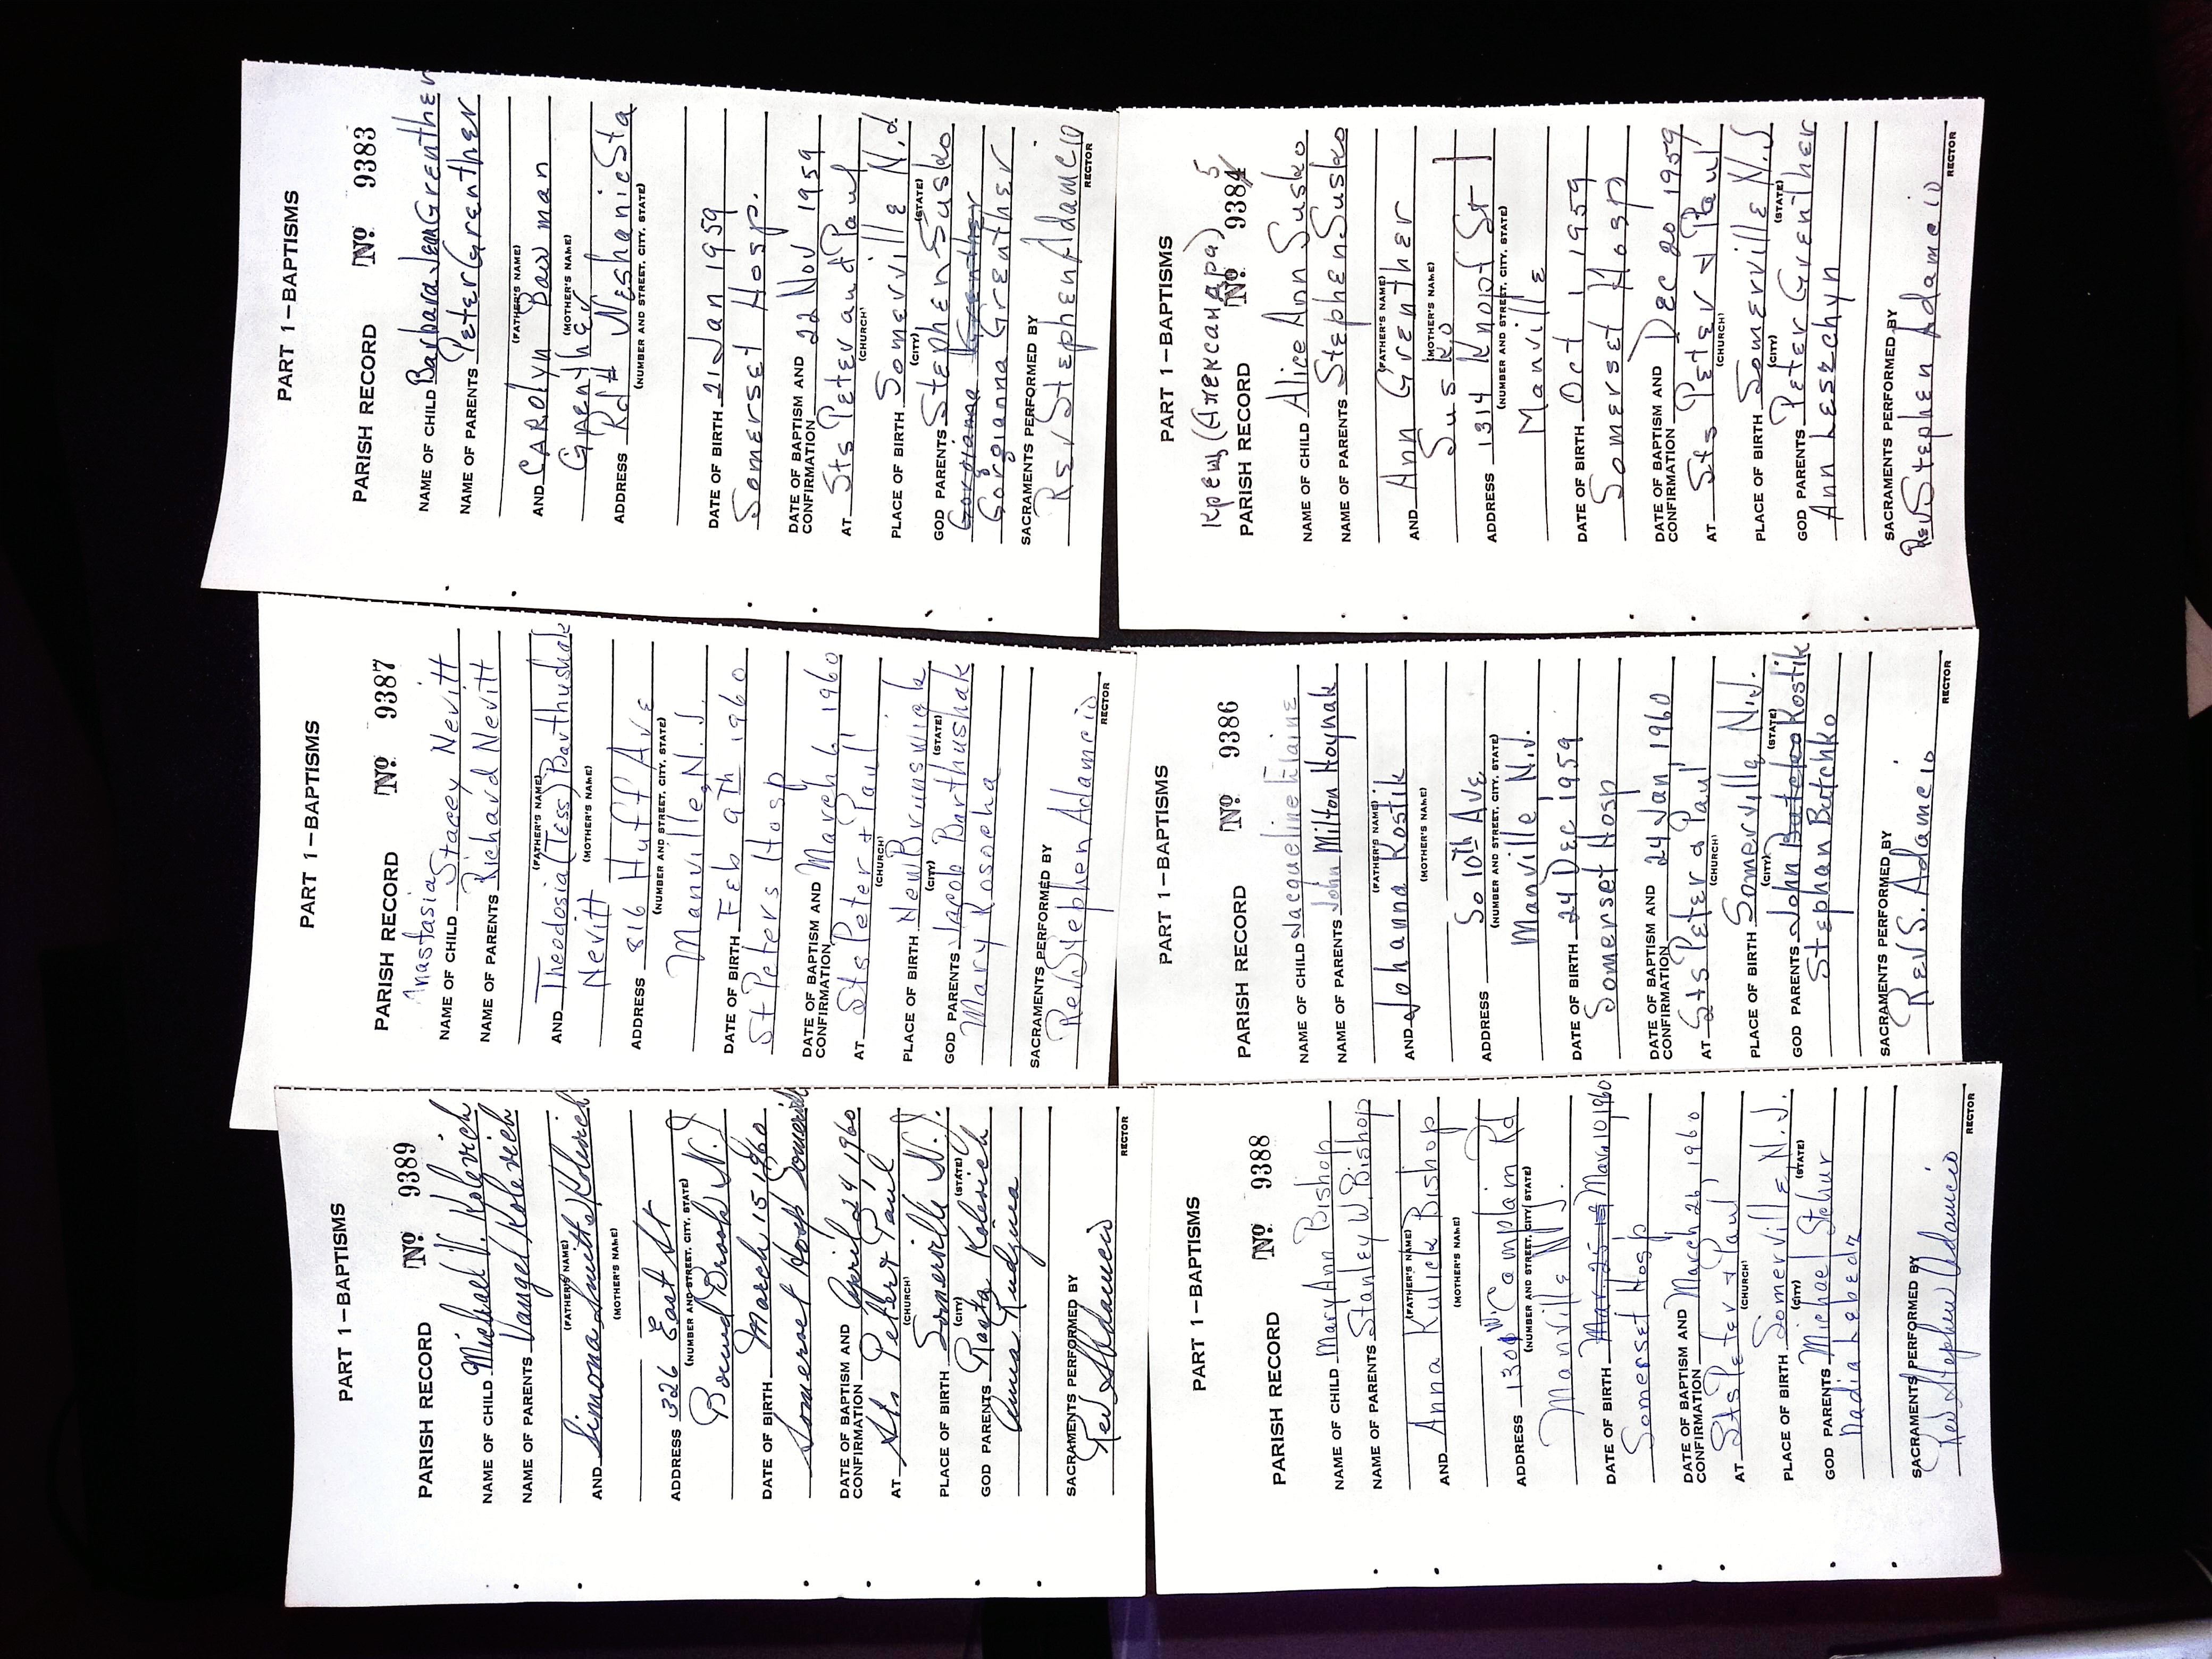 PART 1—BAPTISMS
PARISH RECORD No 9389
NAME OF CHILD Michael V. Kolevich
NAME OF PARENTS Vangel Kolevich
(FATHER'S NAME)
AND Simona Smitte Kolevich
(MOTHER'S NAME)
ADDRESS 326 East St
(NUMBER AND STREET, CITY, STATE)
Bound Brook N.J
DATE OF BIRTH March 15, 1960
Somerset Hosp Somerville
DATE OF BAPTISM AND
CONFIRMATION April 24, 1960
AT Sts Peter & Paul
(CHURCH)
PLACE OF BIRTH Somerville N.J.
(CITY) (STATE)
GOD PARENTS Rasta Kolevich
Anna
SACRAMENTS PERFORMED BY
Rev S Adamcio
RECTOR
PART 1—BAPTISMS
PARISH RECORD No 9387
Anastasia
NAME OF CHILD Stacey Nevitt
NAME OF PARENTS Richard Nevitt
(FATHER'S NAME)
AND Theodosia (Tess) Barthushak
Nevitt (MOTHER'S NAME)
ADDRESS 816 Huff Ave
(NUMBER AND STREET, CITY, STATE)
Manville, N.J.
DATE OF BIRTH Feb 9th 1960
St Peters Hosp
DATE OF BAPTISM AND
CONFIRMATION March 6, 1960
AT Sts Peter + Paul
(CHURCH)
PLACE OF BIRTH New Brunswick
(CITY) (STATE)
GOD PARENTS Jacob Barthushak
Mary Kosocha
SACRAMENTS PERFORMED BY
Rev Stephen Adamcio
RECTOR
PART 1—BAPTISMS
PARISH RECORD No 9383
NAME OF CHILD Barbara Jean Grenther
NAME OF PARENTS Peter Grenther
(FATHER'S NAME)
AND CAROlyn Bowman
(MOTHER'S NAME)
Grenther
ADDRESS Rd# Neshanic Sta
(NUMBER AND STREET, CITY, STATE)
DATE OF BIRTH 21 Jan 1959
Somerset Hosp.
DATE OF BAPTISM AND
CONFIRMATION 22 Nov 1959
AT Sts Peter and Paul
(CHURCH)
PLACE OF BIRTH Somerville N.J.
(CITY) (STATE)
GOD PARENTS Stephen Susko
Gorgianna Grenther
Gorgianna Grenther
SACRAMENTS PERFORMED BY
Rev Stephen Adamcio
RECTOR
PART 1—BAPTISMS
PARISH RECORD No 9388
NAME OF CHILD Mary Ann Bishop
NAME OF PARENTS Stanley W. Bishop
(FATHER'S NAME)
AND Anna Kulick Bishop
(MOTHER'S NAME)
ADDRESS 1301 W. Camplain Rd
(NUMBER AND STREET, CITY, STATE)
Manville N.J.
DATE OF BIRTH Mar. 25 19 Mar. 10, 1960
Somerset Hosp
DATE OF BAPTISM AND
CONFIRMATION March 26, 1960
AT Sts Peter + Paul
(CHURCH)
PLACE OF BIRTH Somerville, N.J.
(CITY) (STATE)
GOD PARENTS Michael Stchur
Nadia Lebedz
SACRAMENTS PERFORMED BY
Rev Stephen Adamcio
RECTOR
PART 1—BAPTISMS
PARISH RECORD No 9386
NAME OF CHILD Jacqueline Elaine
NAME OF PARENTS John Milton Hoynak
(FATHER'S NAME)
AND Johanna Kostik
(MOTHER'S NAME)
ADDRESS So 10th Ave
(NUMBER AND STREET, CITY, STATE)
Manville, N.J.
DATE OF BIRTH 24 Dec 1959
Somerset Hosp
DATE OF BAPTISM AND
CONFIRMATION 24 Jan, 1960
AT Sts Peter & Paul
(CHURCH)
PLACE OF BIRTH Somerville N.J.
(CITY) (STATE)
GOD PARENTS John Kostik
Stephan Butchko
SACRAMENTS PERFORMED BY
Rev S. Adamcio
RECTOR
PART 1—BAPTISMS
Крещ (Александра) 5
PARISH RECORD No 9384
NAME OF CHILD Alice Ann Susko
NAME OF PARENTS Stephen Susko
(FATHER'S NAME)
AND Ann Grenther
(MOTHER'S NAME)
Susko
ADDRESS 1314 Knopf St
(NUMBER AND STREET, CITY, STATE)
Manville
DATE OF BIRTH Oct 1, 1959
Somerset Hosp
DATE OF BAPTISM AND
CONFIRMATION Dec 20 1959
AT Sts Peter & Paul
(CHURCH)
PLACE OF BIRTH Somerville N.J
(CITY) (STATE)
GOD PARENTS Peter Grenther
Ann Leszchyn
SACRAMENTS PERFORMED BY
Rev Stephen Adamcio
RECTOR